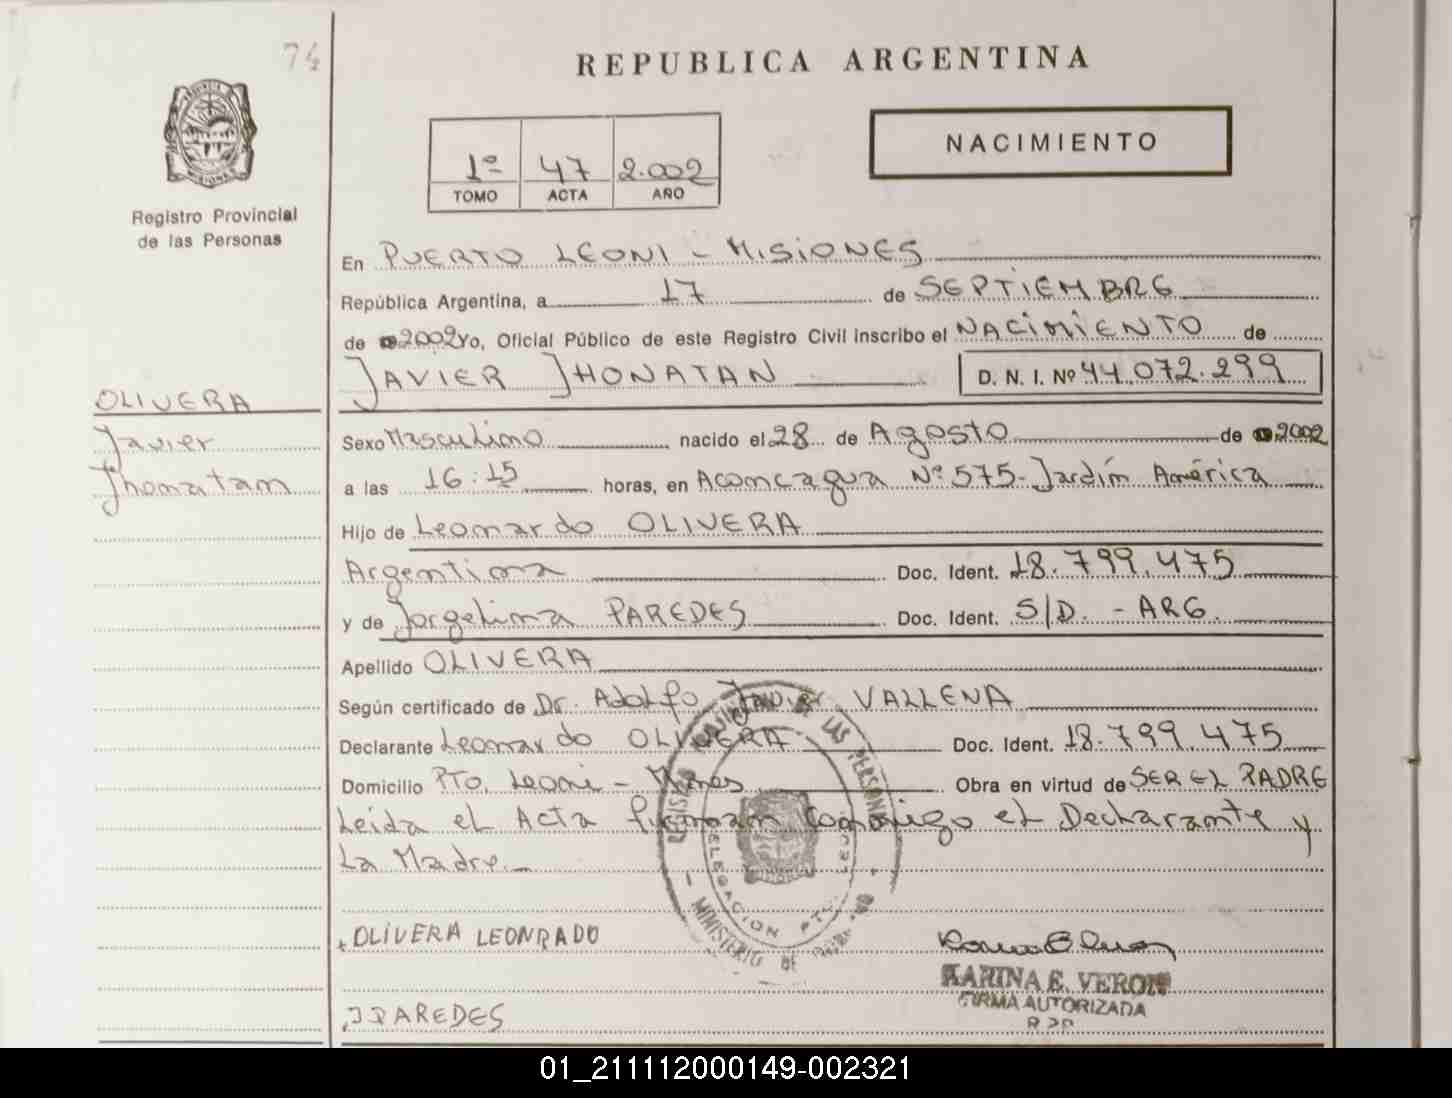 74
REPUBLICA ARGENTINA
NACIMIENTO
1º 47 2.002
TOMO ACTA AÑO
MISIONES
Registro Provincial
de las Personas
En PUERTO LEONI - MISIONES
República Argentina, a 17 de SEPTIEMBRE
de 2002 Yo, Oficial Público de este Registro Civil inscribo el NACIMIENTO de
JAVIER JHONATAN D. N. I. Nº 44.072.299
OLIVERA
Javier
Jhonatan
Sexo Masculino nacido el 28 de Agosto de 2002
a las 16:15 horas, en Aconcagua Nº 575- Jardín América
Hijo de Leonardo OLIVERA
Argentina Doc. Ident. 18.799.475
y de Jorgelina PAREDES Doc. Ident. S/D. - ARG.
Apellido OLIVERA
Según certificado de Dr. Adolfo Javier VALLENA
Declarante Leonardo OLIVERA Doc. Ident. 18.799.475
Domicilio Pto. Leoni - Mnes Obra en virtud de SER EL PADRE
Leida el Acta firman conmigo el Declarante y
La Madre.-
REGISTRO DE LAS PERSONAS
DELEGACION
MINISTERIO DE
OLIVERA LEONRADO
KARINA E. VERON
FIRMA AUTORIZADA
J PAREDES
01_211112000149-002321